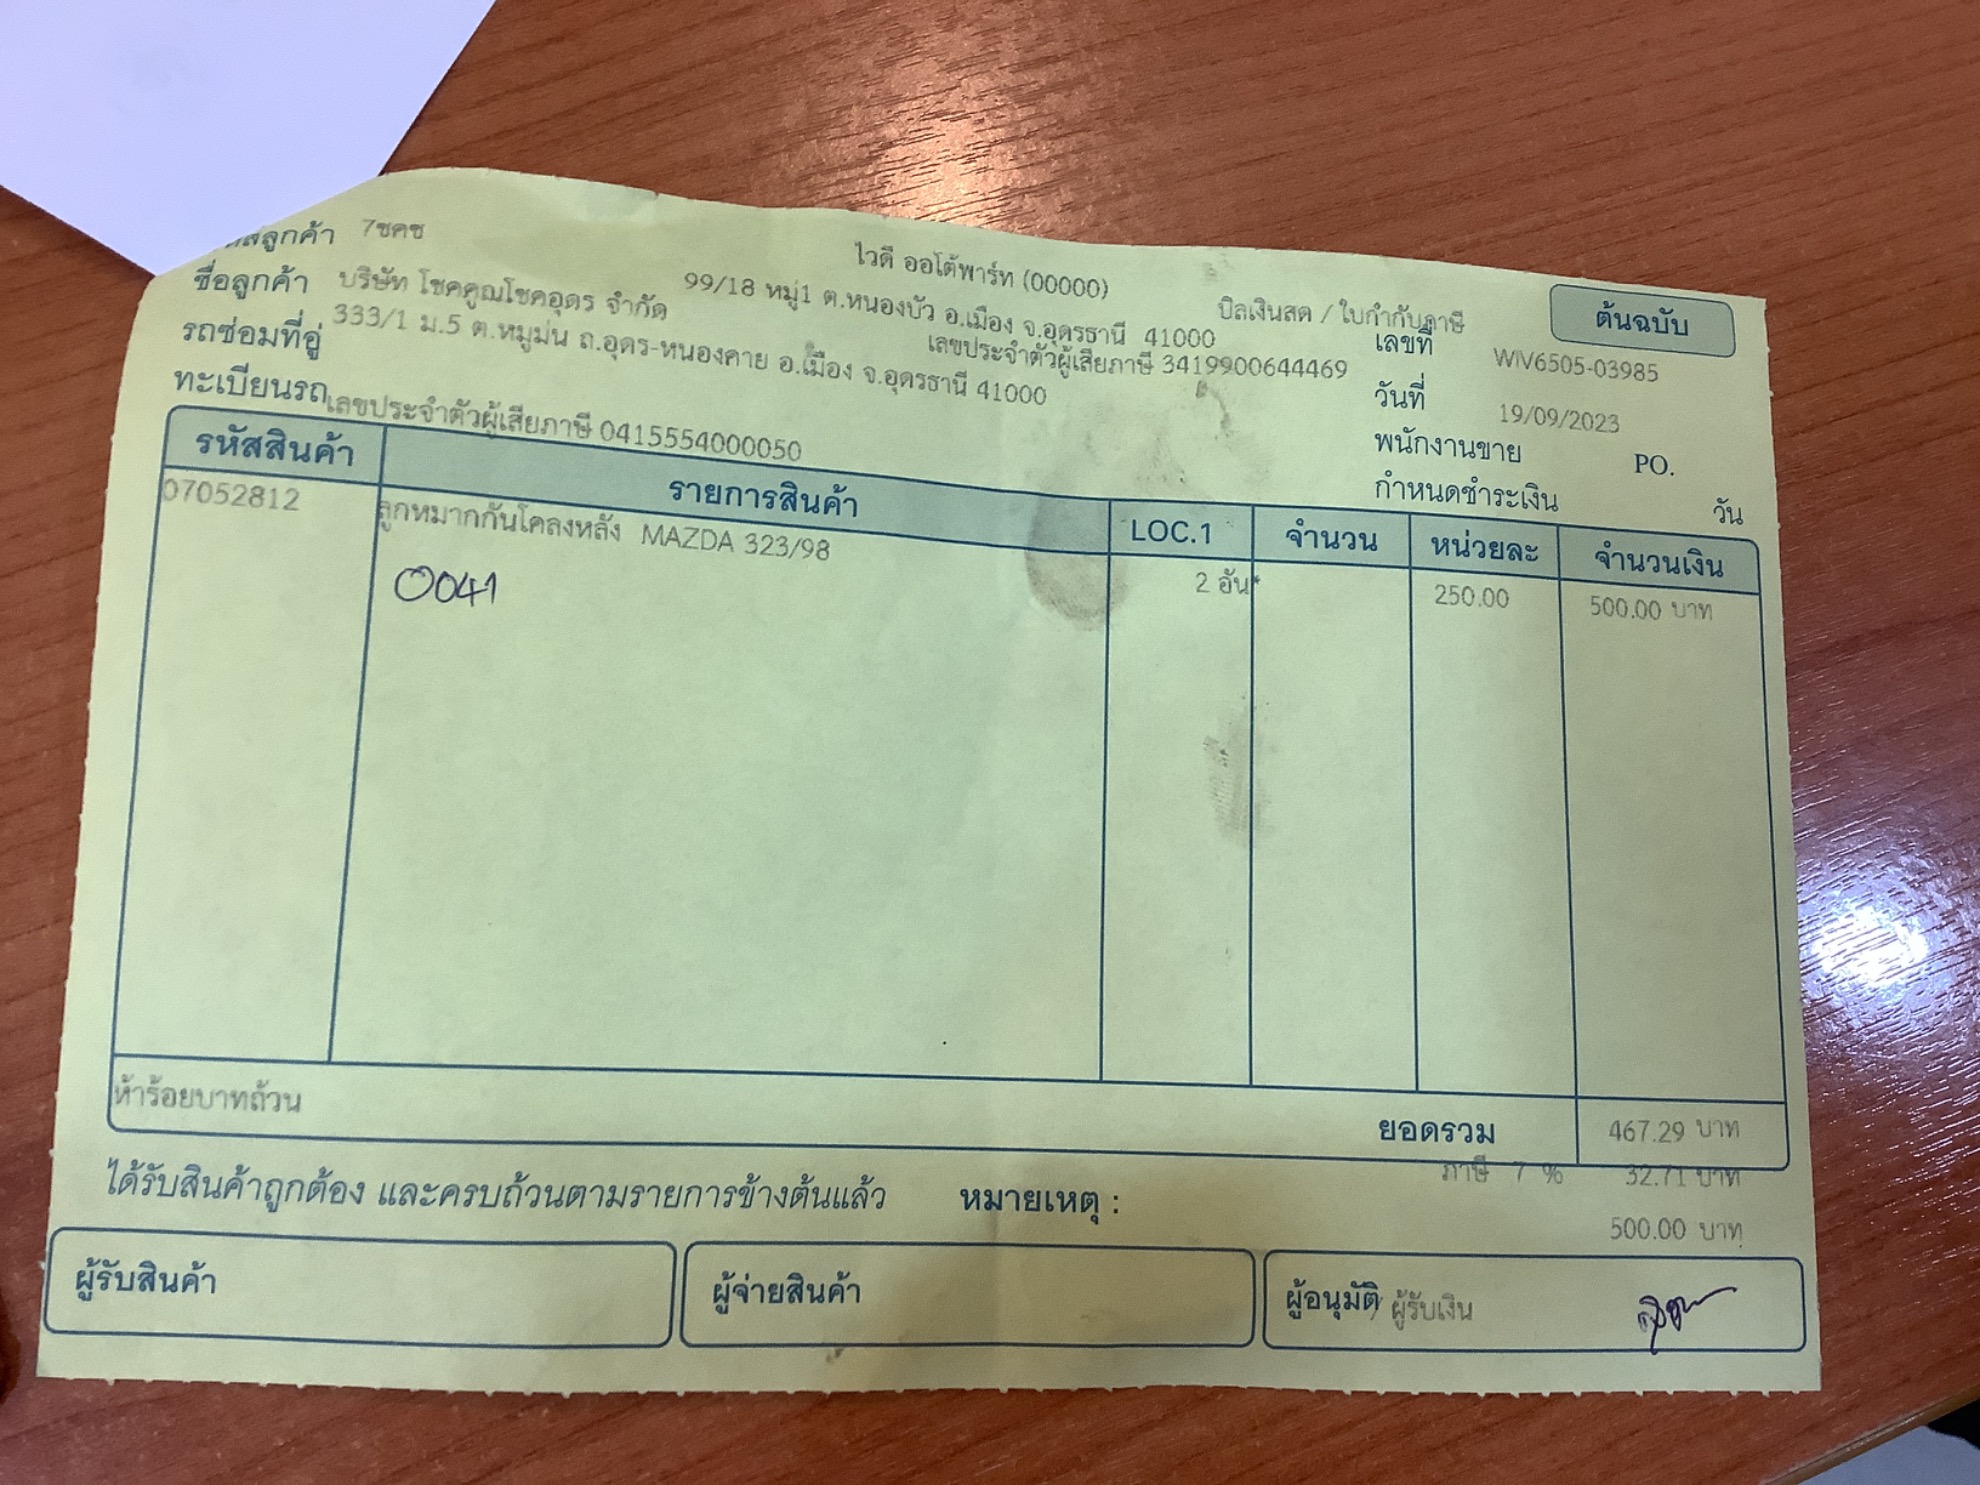 ไวดี ออโต้พาร์ท (00000)
99/18 หมู่1 ต.หนองบัว อ.เมือง จ.อุดรธานี 41000
เลขประจำตัวผู้เสียภาษี 3419900644469
บิลเงินสด / ใบกำกับภาษี
ต้นฉบับ
ลูกค้า 7ชคช
ชื่อลูกค้า บริษัท โชคคูณโชคอุดร จำกัด
รถซ่อมที่อู่ 333/1 ม.5 ต.หมูม่น ถ.อุดร-หนองคาย อ.เมือง จ.อุดรธานี 41000
ทะเบียนรถ เลขประจำตัวผู้เสียภาษี 0415554000050
เลขที่ WIV6505-03985
วันที่ 19/09/2023
พนักงานขาย PO.
กำหนดชำระเงิน วัน
รหัสสินค้า รายการสินค้า LOC.1 จำนวน หน่วยละ จำนวนเงิน
07052812 ลูกหมากกันโคลงหลัง MAZDA 323/98 2 อัน* 250.00 500.00 บาท
0041
ห้าร้อยบาทถ้วน
ยอดรวม 467.29 บาท
ภาษี 7 % 32.71 บาท
500.00 บาท
ได้รับสินค้าถูกต้อง และครบถ้วนตามรายการข้างต้นแล้ว หมายเหตุ :
ผู้รับสินค้า ผู้จ่ายสินค้า ผู้อนุมัติ / ผู้รับเงิน